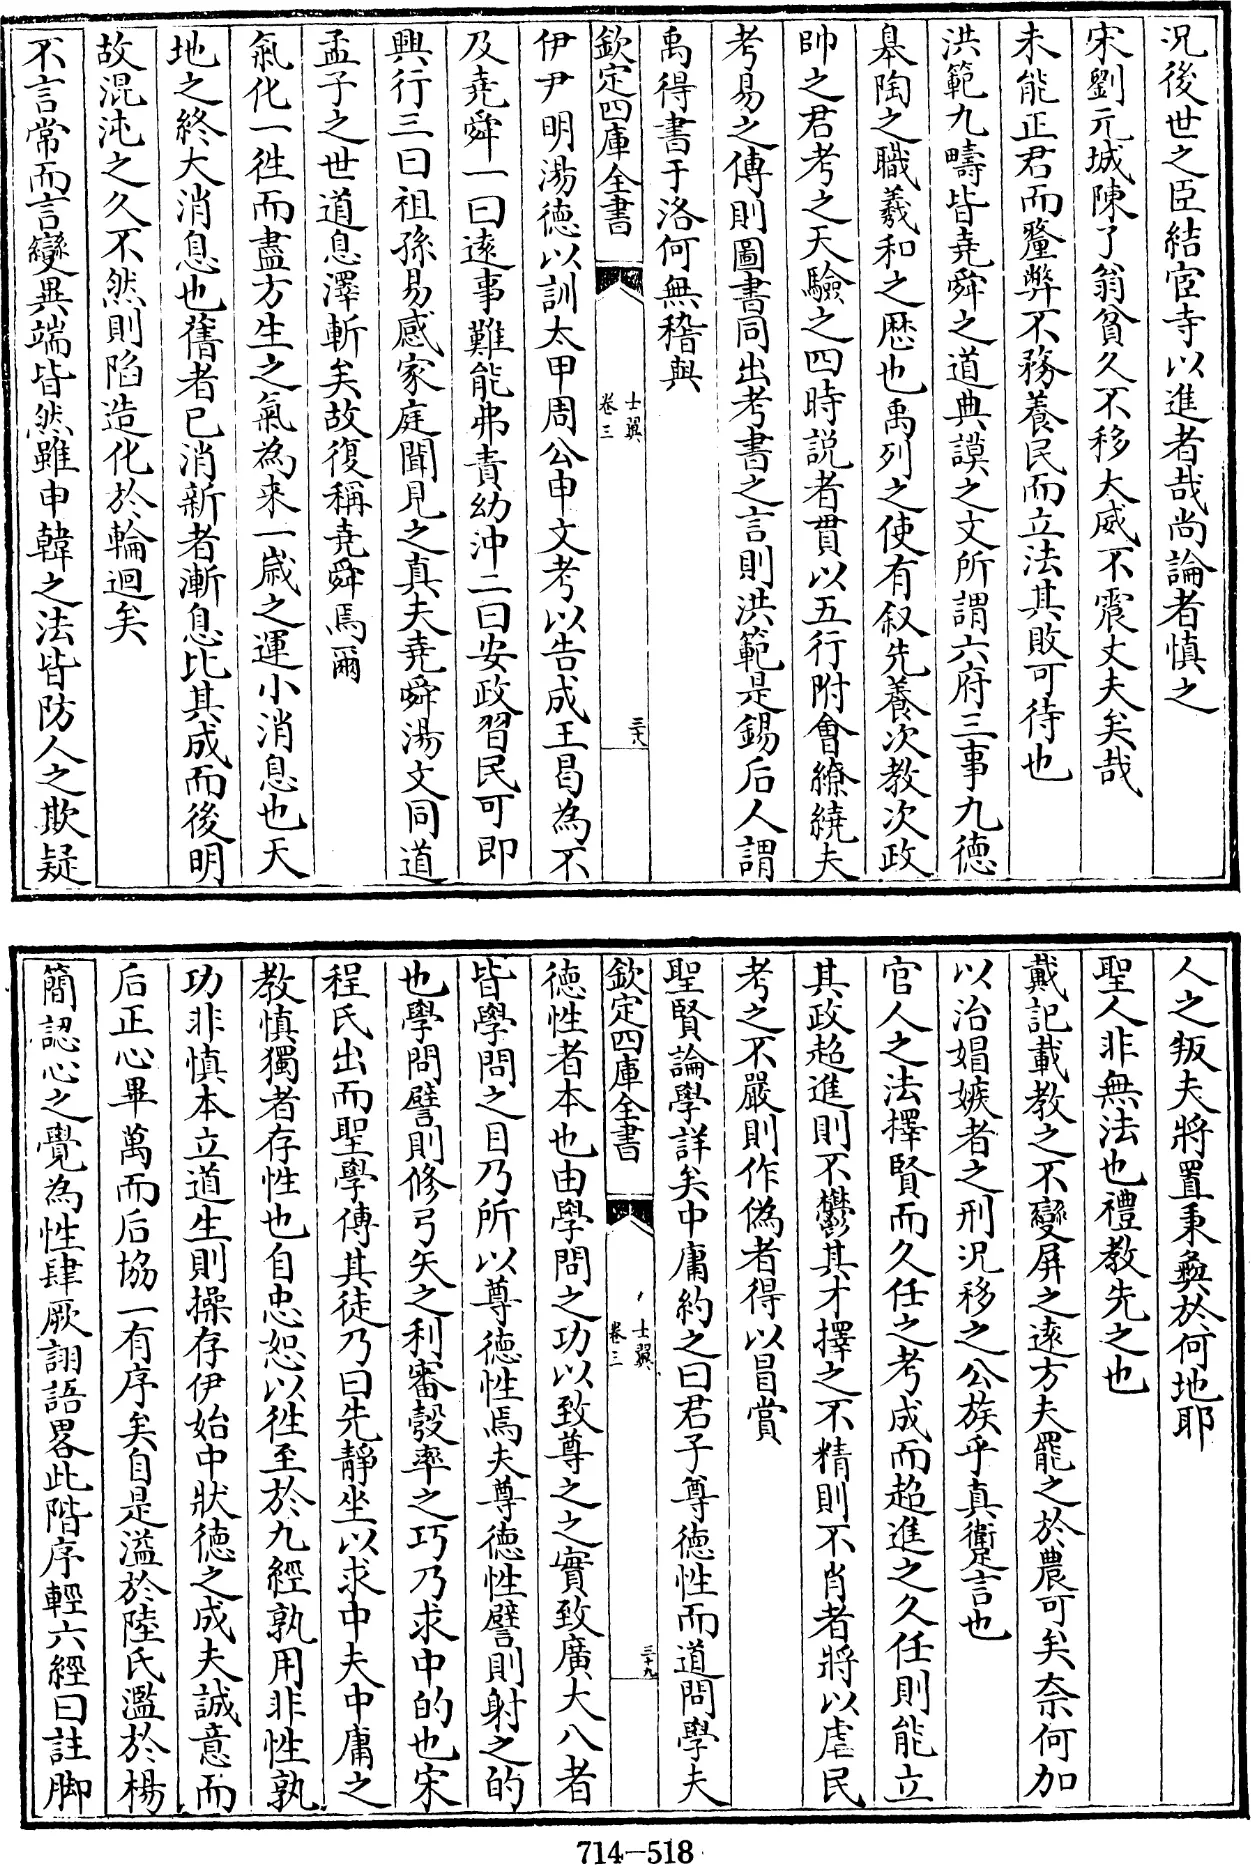 況後世之臣結宦寺以進者哉尚論者慎之
宋劉元城陳了翁貧久不移大威不震丈夫矣哉
未能正君而釐弊不務養民而立法其敗可待也
洪範九疇皆堯舜之道典謨之文所謂六府三事九德
皋陶之職羲和之歴也禹列之使有叙先養次教次政
帥之君考之天驗之四時説者貫以五行附會繚繞夫
考易之傳則圖書同出考書之言則洪範是錫后人謂
禹得書于洛何無稽與
欽定四庫全書
士翼
卷三
三十八
伊尹明湯德以訓太甲周公申文考以告成王曷為不
及堯舜一曰逺事難能弗責幼沖二曰安政習民可即
興行三曰祖孫易感家庭聞見之真夫堯舜湯文同道
孟子之世道息澤斬矣故復稱堯舜焉爾
氣化一徃而盡方生之氣為来一嵗之運小消息也天
地之終大消息也舊者已消新者漸息比其成而後明
故混沌之久不然則陷造化於輪迴矣
不言常而言變異端皆然雖申韓之法皆防人之欺疑
人之叛夫將置秉彜於何地耶
聖人非無法也禮教先之也
戴記載教之不變屏之逺方夫罷之於農可矣奈何加
以治娼嫉者之刑況移之公族乎真躗言也
官人之法擇賢而久任之考成而超進之久任則能立
其政超進則不鬱其才擇之不精則不肖者將以虐民
考之不嚴則作偽者得以冒賞
聖賢論學詳矣中庸約之曰君子尊德性而道問學夫
欽定四庫全書
士翼
卷三
三十九
德性者本也由學問之功以致尊之之實致廣大八者
皆學問之目乃所以尊德性焉夫尊德性譬則射之的
也學問譬則修弓矢之利審彀率之巧乃求中的也宋
程氏出而聖學傳其徒乃曰先靜坐以求中夫中庸之
教慎獨者存性也自忠恕以徃至於九經孰用非性孰
功非慎本立道生則操存伊始中狀德之成夫誠意而
后正心畢萬而后協一有序矣自是溢於陸氏濫於楊
簡認心之覺為性肆厥詡語畧此階序輕六經曰註脚
714-518